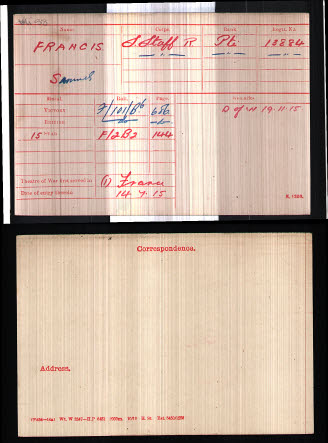 Name. Corps. Rank. Regtl. No.
FRANCIS S. Staff R Pte 13884
Samuel
Medal. Roll. Page. Remarks.
VICTORY F/101/B6 656 D of W 19.11.15
BRITISH do do
15 STAR F/2B2 144
Theatre of War first served in (1) France
Date of entry therein 14.7.15
K. 1380.
Correspondence.
Address.